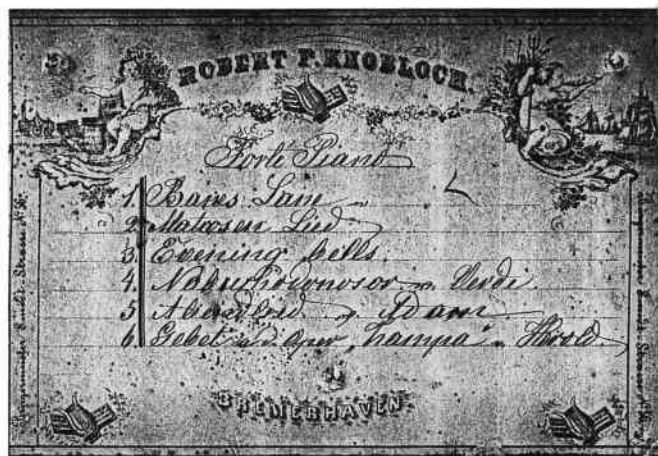 ROBERT F. KNOBLOCH.
Forte Piano
1. Banes Lane
2. Matrosen Lied
3. Evening bells.
4. Nabuchodonosor v. Verdi.
5 Abendlied v. Adam
6 Gebet a. d. Oper „Zampa" v. Herold
BREMERHAVEN.